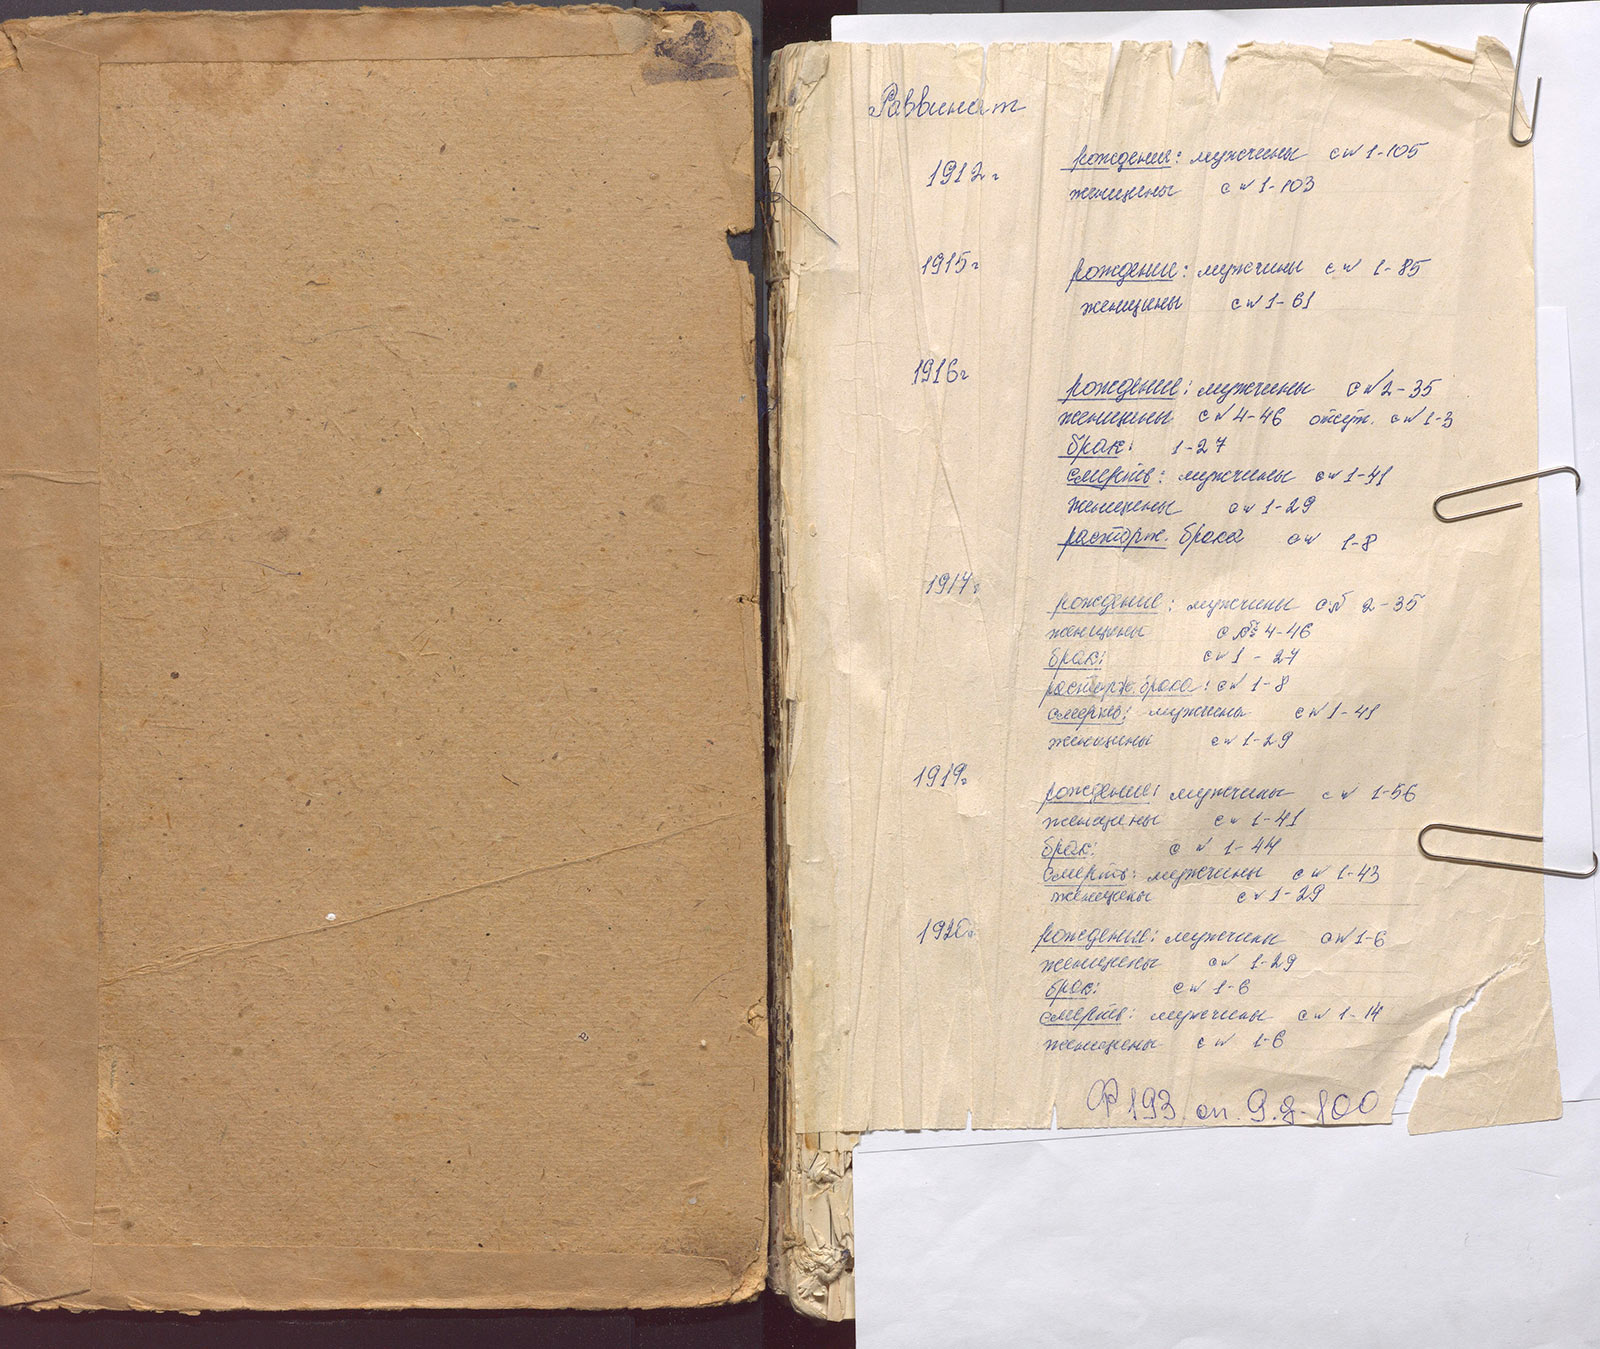 Раввинат
1912г рождение: мужчины с № 1-105
женщины с № 1-103
1915г рождение: мужчины с № 1-85
женщины с № 1-61
1916г рождение: мужчины с № 2-35
женщины с № 4-46 отсут. с № 1-3
брак: 1-27
смерть: мужчины с № 1-41
женщины с № 1-29
расторж. брака с № 1-8
1917г рождение: мужчины с № 2-35
женщины с № 4-46
брак: с № 1-27
расторж. брака: с № 1-8
смерть: мужчины с № 1-41
женщины с № 1-29
1919г рождение: мужчины с № 1-56
женщины с № 1-41
брак: с № 1-44
смерть: мужчины с № 1-43
женщины с № 1-29
1920г рождение: мужчины с № 1-6
женщины с № 1-29
брак: с № 1-6
смерть: мужчины с № 1-14
женщины с № 1-6
Ф 193 оп. 9. д. 100